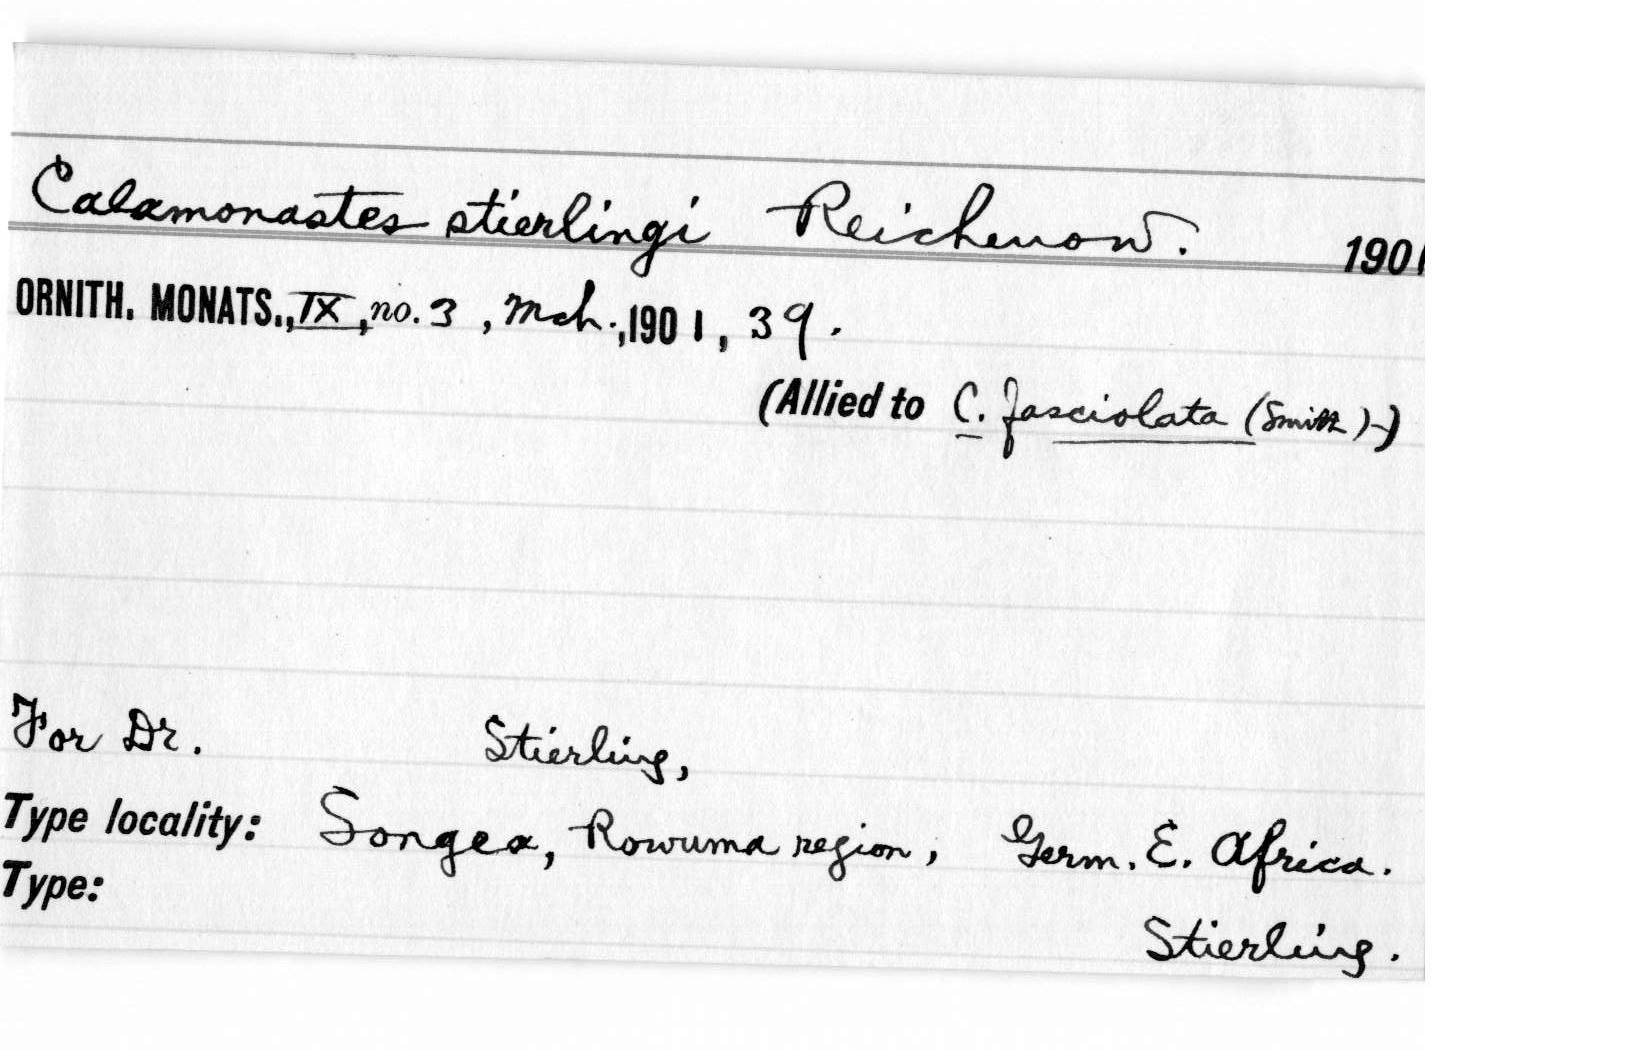 Calamonastes stierlingi Reichenow. 1901
ORNITH. MONATS., IX, no. 3, Mch., 1901, 39.
(Allied to C. fasciolata (Smith).)
For Dr. Stierling,
Type locality: Songea, Rowuma region, Germ. E. Africa.
Type:
Stierling.